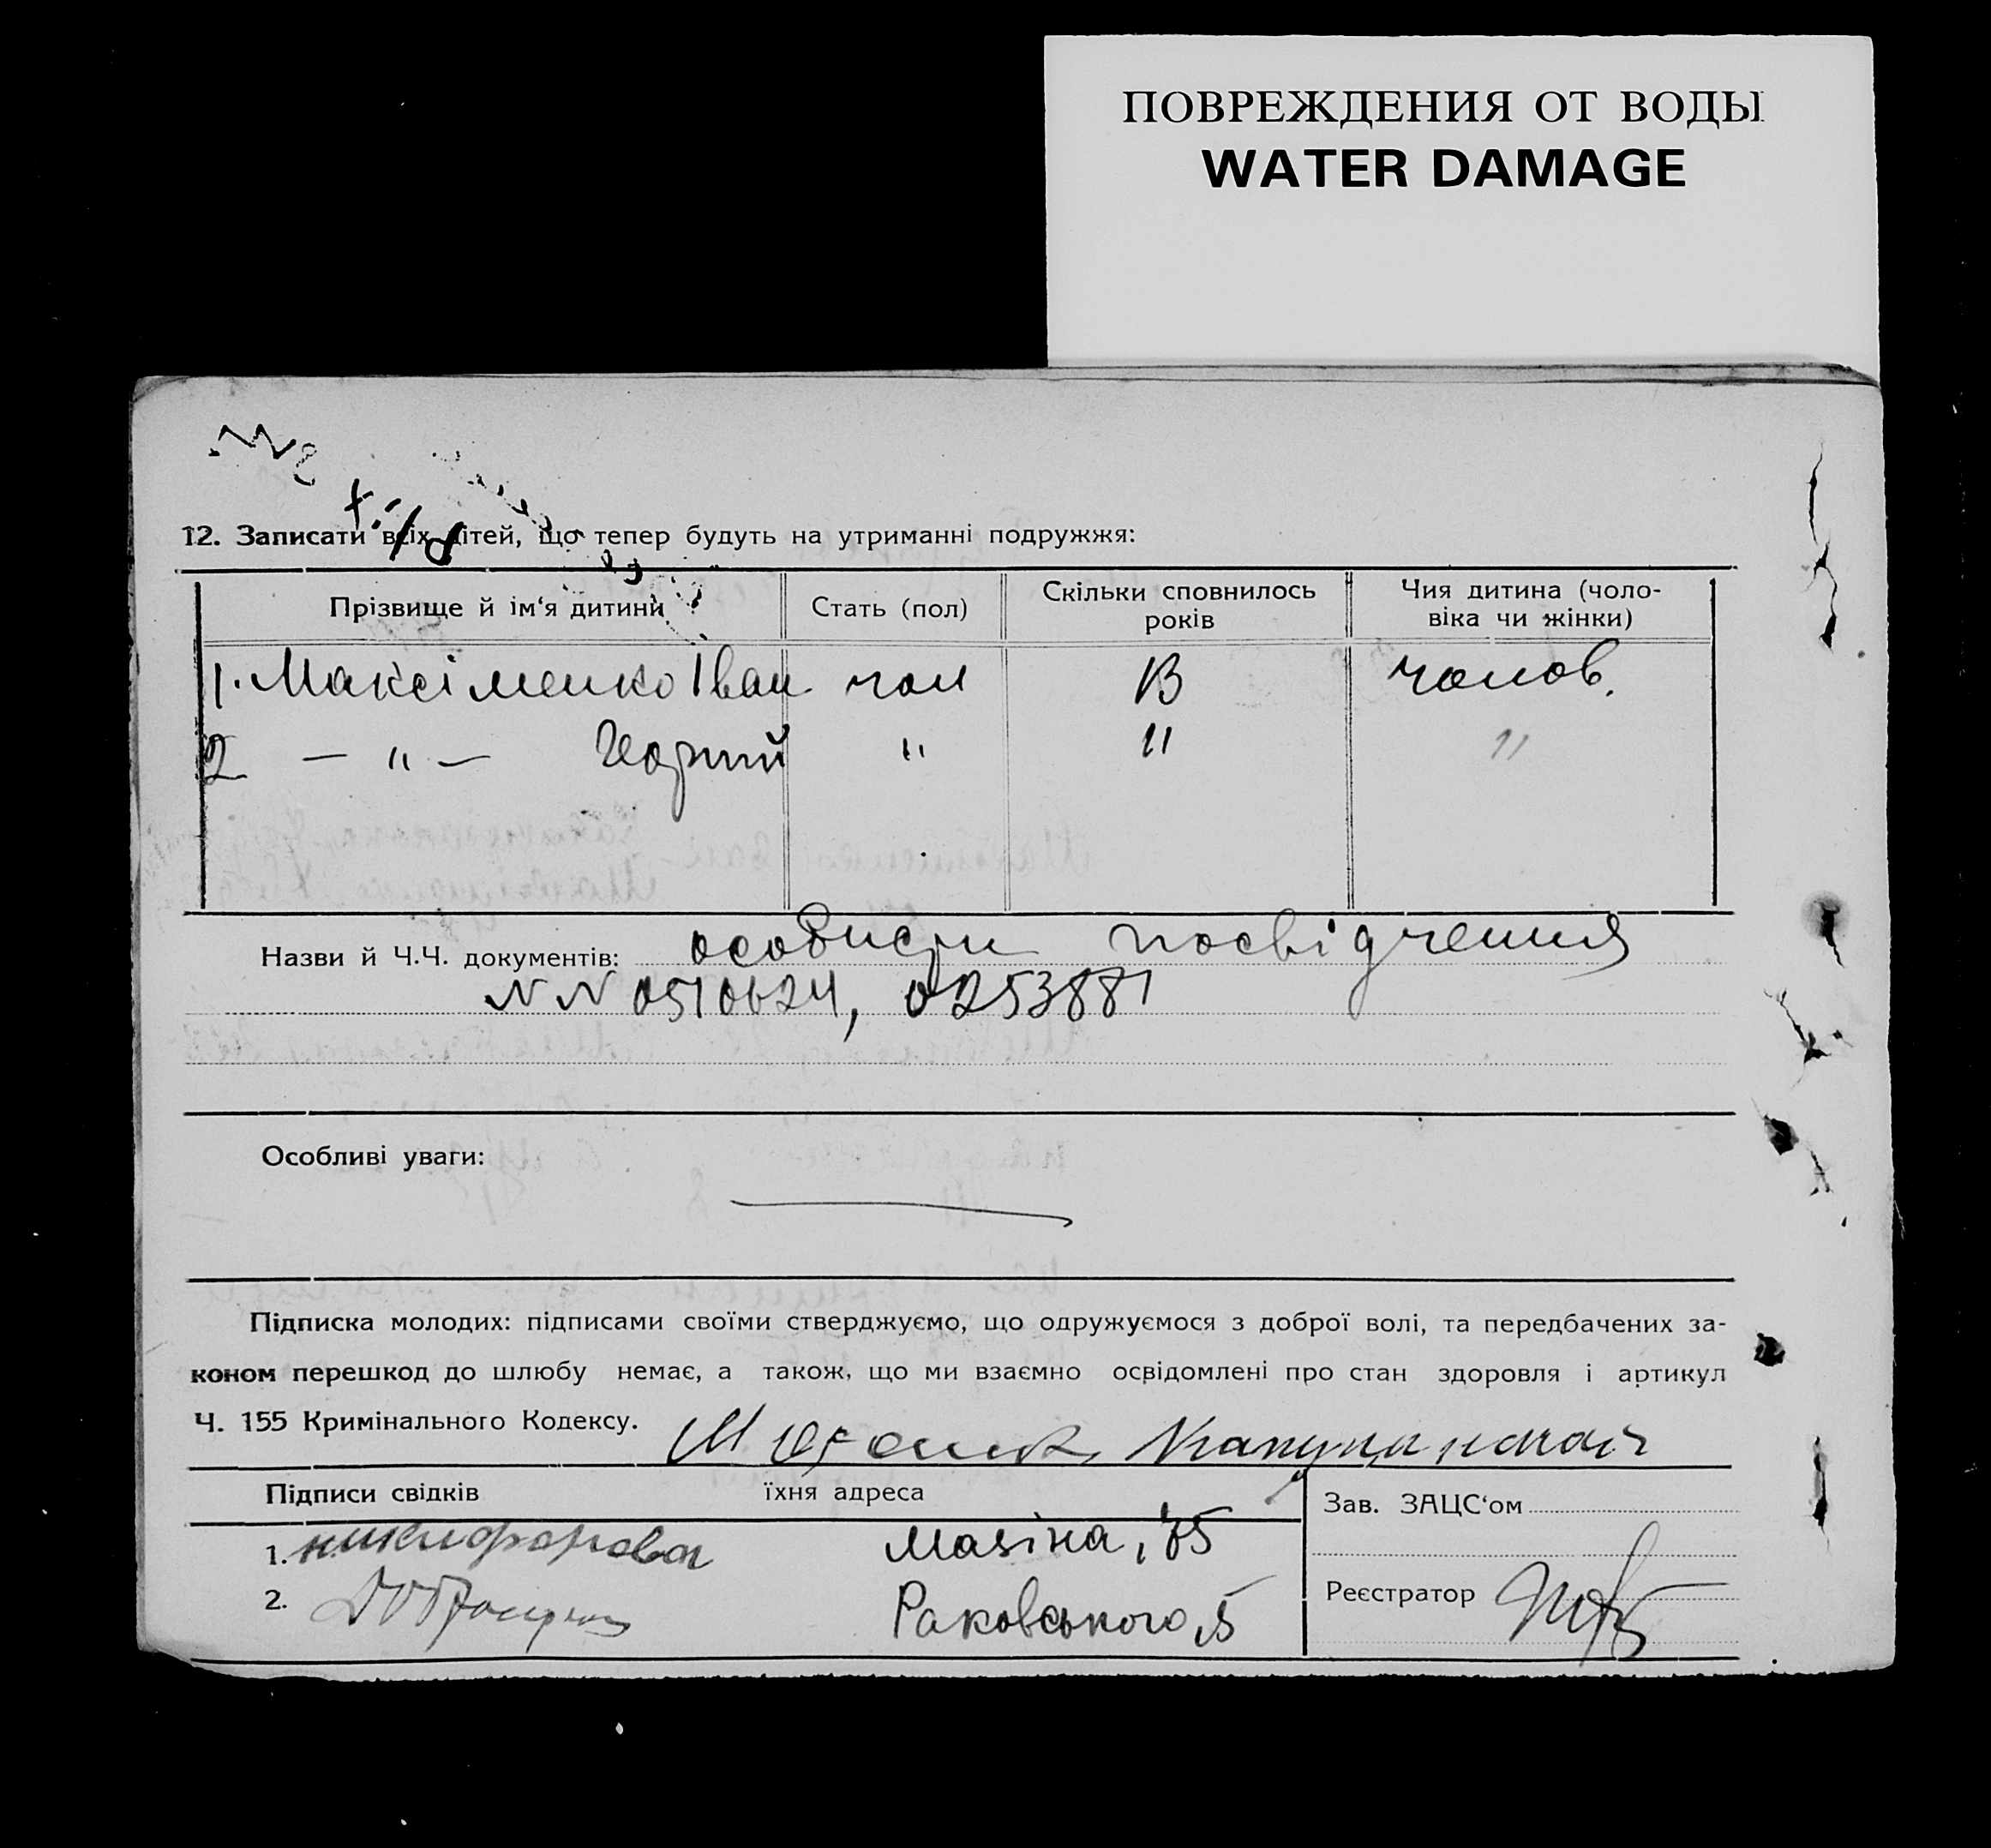 ПОВРЕЖДЕНИЯ ОТ ВОДЫ
WATER DAMAGE
12. Записати всіх дітей, що тепер будуть на утриманні подружжя:
Прізвище й ім‘я дитини Стать (пол) Скільки сповнилось років Чия дитина (чоло-віка чи жінки)
1. Максіменко Іван чол 13 чолов.
2 — " — " " "
Назви й Ч.Ч. документів: особисти посвідчення
NN 0510624, 0253881
Особливі уваги:
Підписка молодих: підписами своїми стверджуємо, що одружуємося з доброї волі, та передбачених за-
коном перешкод до шлюбу немає, а також, що ми взаємно освідомлені про стан здоровля і артикул
Ч. 155 Кримінального Кодексу.
Підписи свідків їхня адреса Зав. ЗАЦС‘ом
1. никифорова Мазіна, 75
Реєстратор
2. Раковського, 5